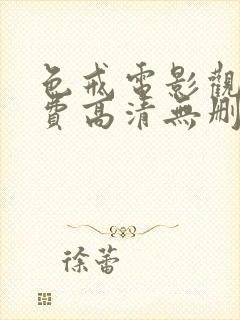 色戒電影觀
費高清無刪
徐蕾